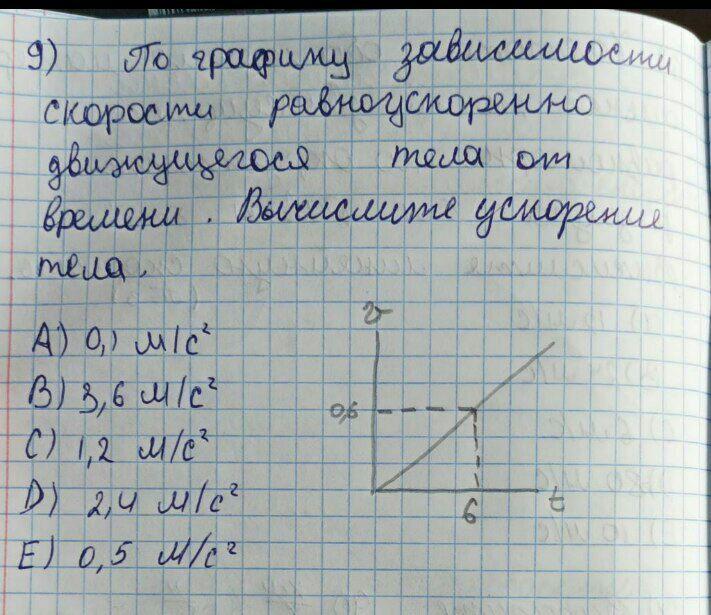 9) По графику зависимости
скорости равноускоренно
движущегося тела от
времени. Вычислите ускорение
тела.
A) 0,1 м/с²
B) 3,6 м/с²
C) 1,2 м/с²
D) 2,4 м/с²
E) 0,5 м/с²
v
0,6
6
t